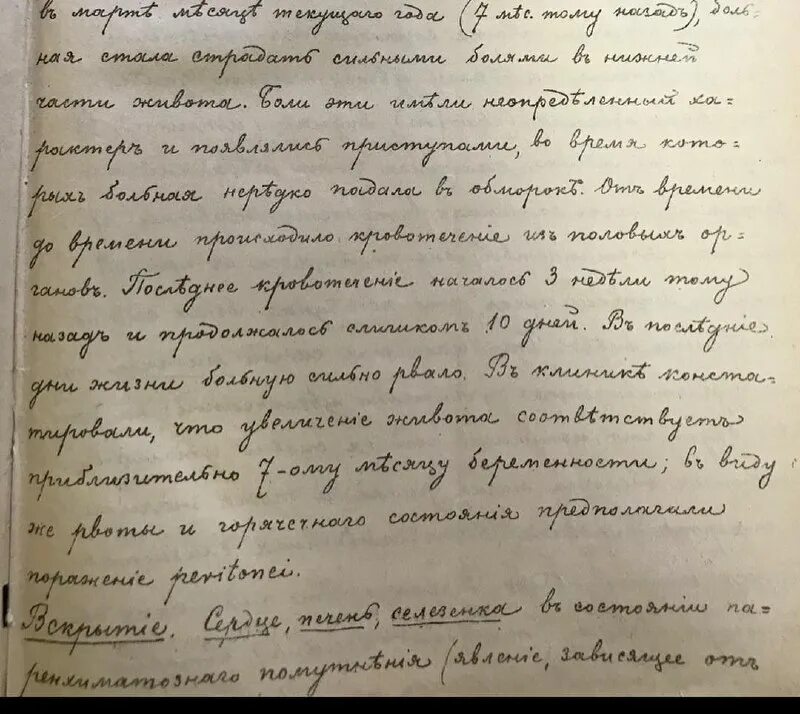 въ мартѣ мѣсяцѣ текущаго года (7 мѣс. тому назадъ), боль-
ная стала страдать сильными болями въ нижней
части живота. Боли эти имѣли неопредѣленный ха-
рактеръ и появлялись приступами, во время кото-
рыхъ больная нерѣдко падала въ обморокъ. Отъ времени
до времени происходило кровотеченіе изъ половыхъ ор-
гановъ. Послѣднее кровотеченіе началось 3 недѣли тому
назадъ и продолжалось слишкомъ 10 дней. Въ послѣдніе
дни жизни больную сильно рвало. Въ клиникѣ конста-
тировали, что увеличеніе живота соотвѣтствуетъ
приблизительно 7-ому мѣсяцу беременности; въ виду
же рвоты и горячечнаго состоянія предполагали
пораженіе peritonei.
Вскрытіе. Сердце, печень, селезенка въ состояніи па-
ренхиматознаго помутнѣнія (явленіе, зависящее отъ